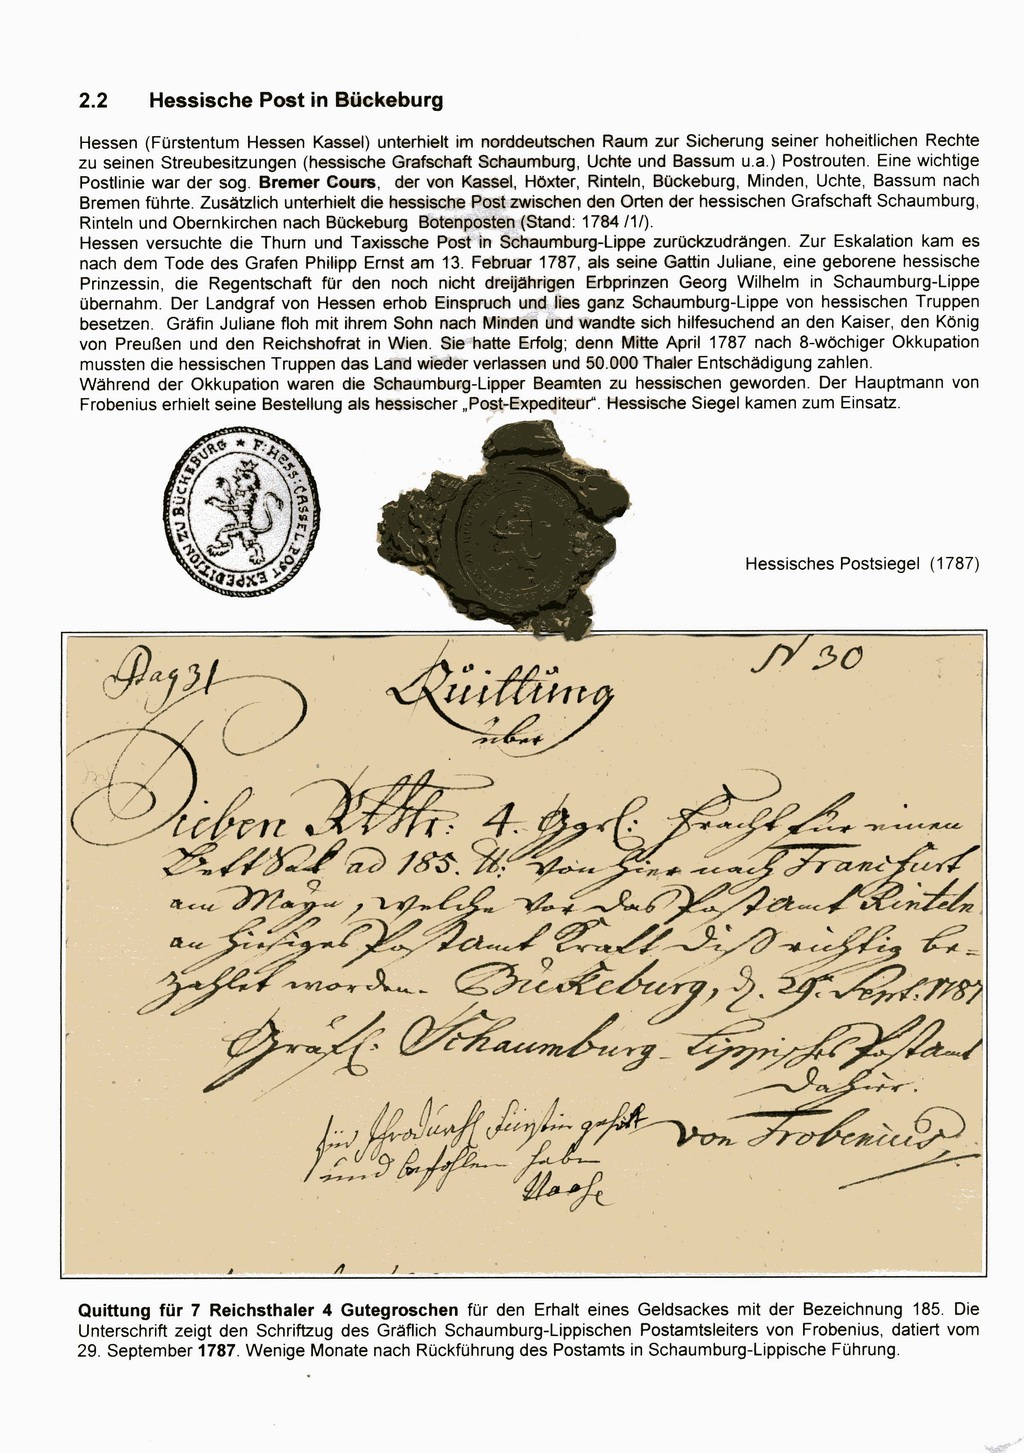 2.2 Hessische Post in Bückeburg
Hessen (Fürstentum Hessen Kassel) unterhielt im norddeutschen Raum zur Sicherung seiner hoheitlichen Rechte
zu seinen Streubesitzungen (hessische Grafschaft Schaumburg, Uchte und Bassum u.a.) Postrouten. Eine wichtige
Postlinie war der sog. Bremer Cours, der von Kassel, Höxter, Rinteln, Bückeburg, Minden, Uchte, Bassum nach
Bremen führte. Zusätzlich unterhielt die hessische Post zwischen den Orten der hessischen Grafschaft Schaumburg,
Rinteln und Obernkirchen nach Bückeburg Botenposten (Stand: 1784 /1/).
Hessen versuchte die Thurn und Taxissche Post in Schaumburg-Lippe zurückzudrängen. Zur Eskalation kam es
nach dem Tode des Grafen Philipp Ernst am 13. Februar 1787, als seine Gattin Juliane, eine geborene hessische
Prinzessin, die Regentschaft für den noch nicht dreijährigen Erbprinzen Georg Wilhelm in Schaumburg-Lippe
übernahm. Der Landgraf von Hessen erhob Einspruch und lies ganz Schaumburg-Lippe von hessischen Truppen
besetzen. Gräfin Juliane floh mit ihrem Sohn nach Minden und wandte sich hilfesuchend an den Kaiser, den König
von Preußen und den Reichshofrat in Wien. Sie hatte Erfolg; denn Mitte April 1787 nach 8-wöchiger Okkupation
mussten die hessischen Truppen das Land wieder verlassen und 50.000 Thaler Entschädigung zahlen.
Während der Okkupation waren die Schaumburg-Lipper Beamten zu hessischen geworden. Der Hauptmann von
Frobenius erhielt seine Bestellung als hessischer „Post-Expediteur“. Hessische Siegel kamen zum Einsatz.
F: HESS: CASSEL. POST EXPEDITION ZU BÜCKEBURG *
Hessisches Postsiegel (1787)
Pag 31
N 30
Quittung
über
Sieben Rthlr: 4. Ggrl: Fracht für einen
ad 185. ℔: von hier nach Francfurt
am Mayn, welche vor das Postamt Rinteln
an hiesiges Postamt Krafft diß richtig be=
zahlet worden. Bückeburg, d. 29. Sept: 1787
Gräfl: Schaumburg-Lippisches Postamt
dahier.
von Frobenius
Ihro durchl Fürstin
und befohlen haben
Quittung für 7 Reichsthaler 4 Gutegroschen für den Erhalt eines Geldsackes mit der Bezeichnung 185. Die
Unterschrift zeigt den Schriftzug des Gräflich Schaumburg-Lippischen Postamtsleiters von Frobenius, datiert vom
29. September 1787. Wenige Monate nach Rückführung des Postamts in Schaumburg-Lippische Führung.